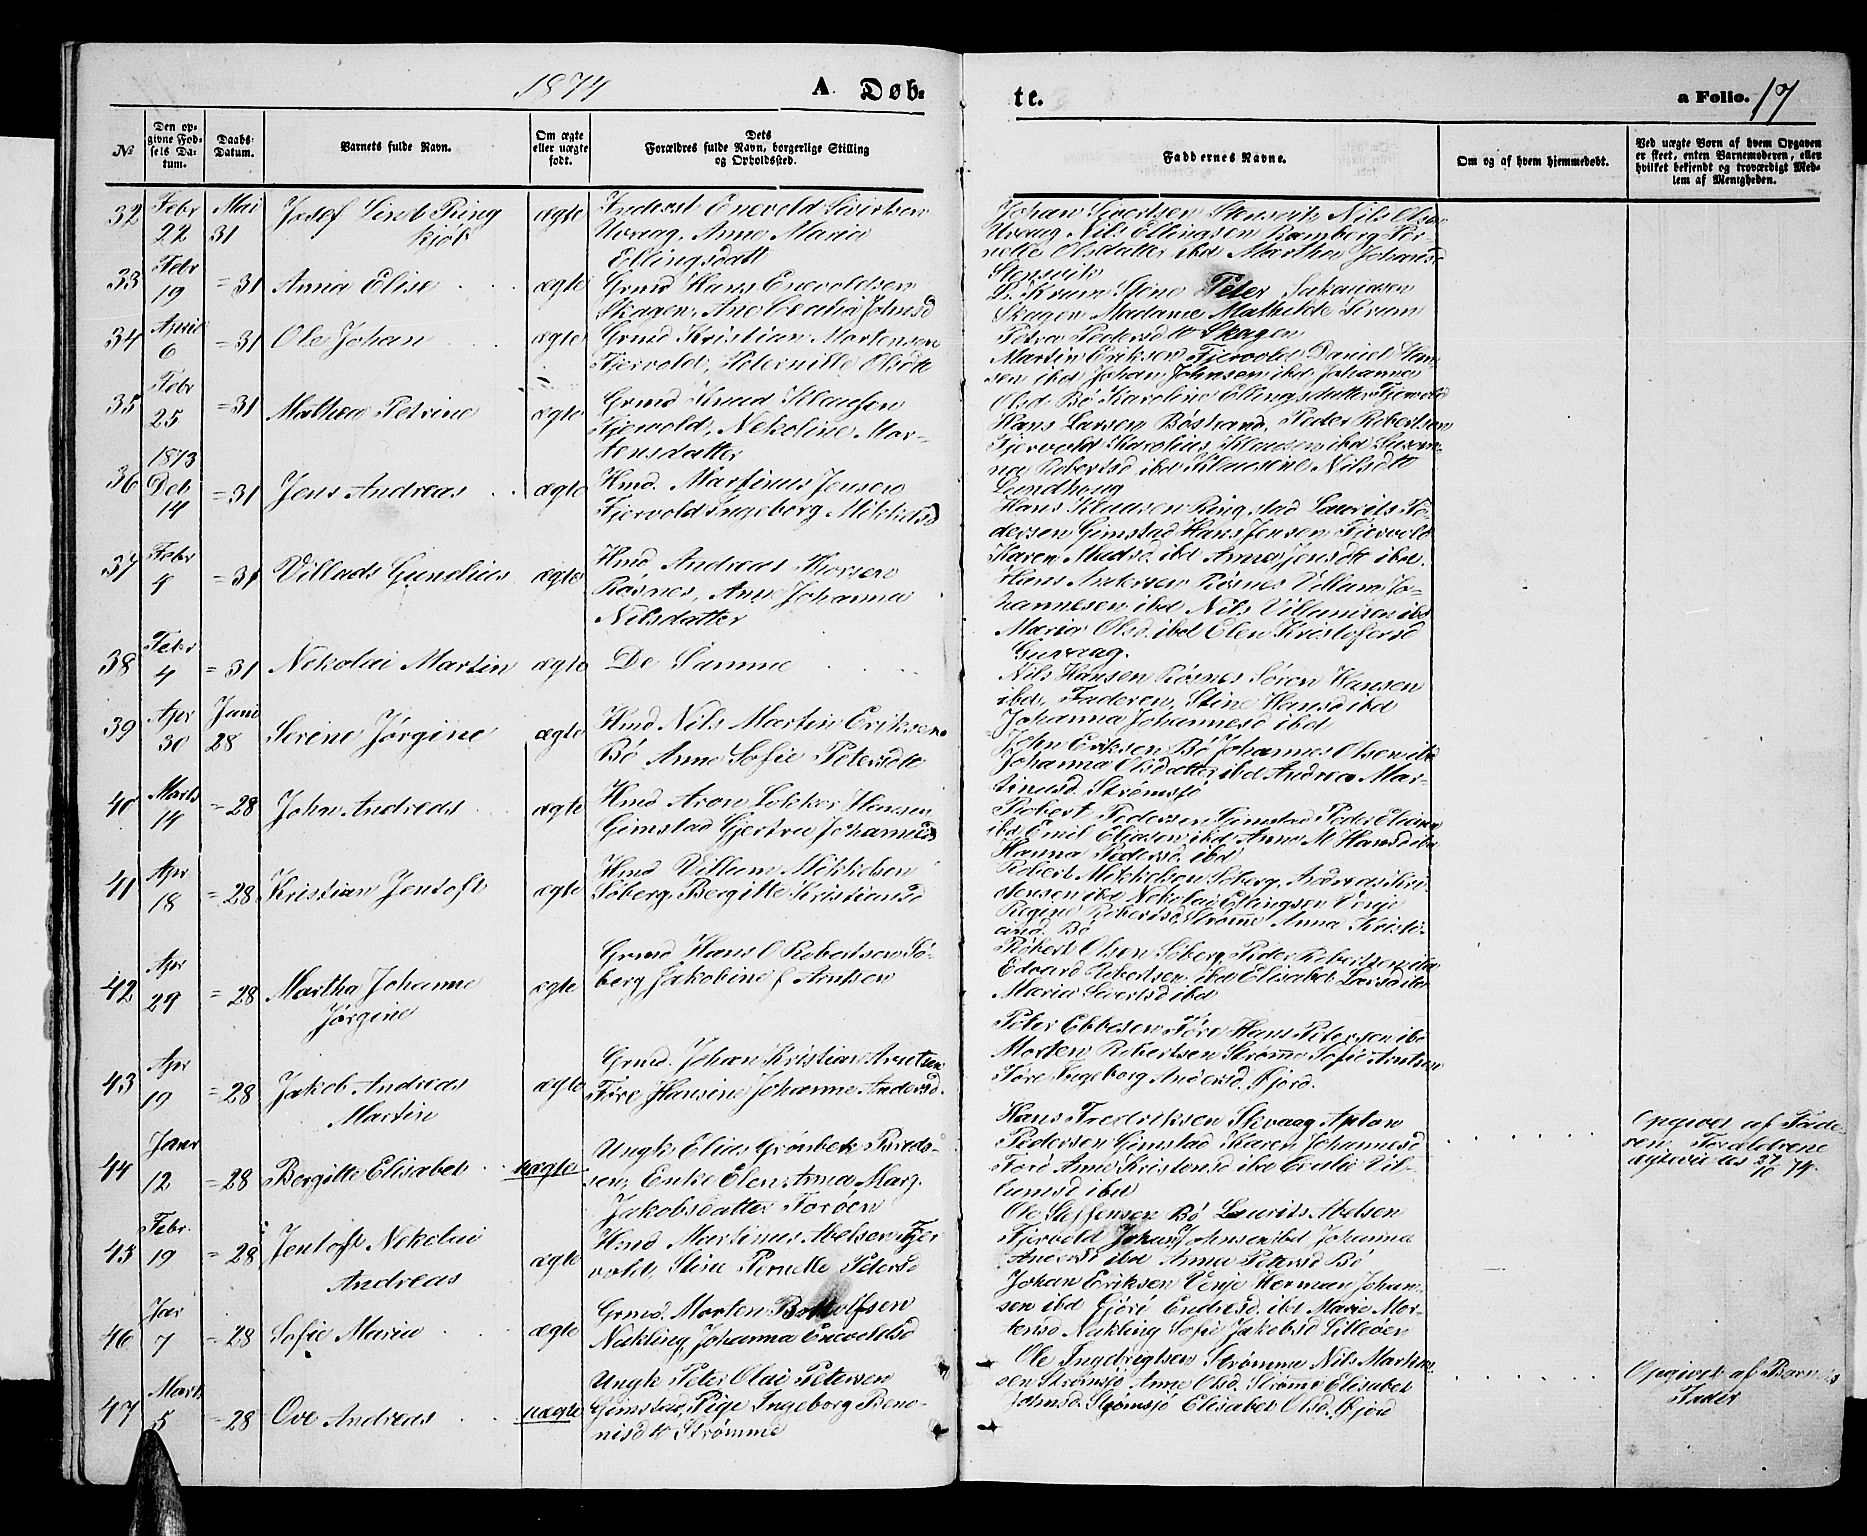 1874
A Døb-
te.
a Folio. 17
№
Den op-
givne Fød-
sels Da-
tum.
Daabs-
Datum.
Barnets fulde Navn.
Om ægte
eller uægte
født.
Dets
Forældres fulde Navn, borgerlige Stilling
og Opholdssted.
Faddernes Navne.
Om og af hvem hjemmedøbt.
Ved uægte Børn af hvem Opgaven
er skeet, enten Barnemoderen, eller
hvilket bekjendt og troværdigt Med-
lem af Menigheden.
32 Febr 22 Mai 31 Josef Lind Ring
kjøb
ægte
Inderst Enevold Sivertsen
Uvaag, Anne Maria
Ellingsdatt
Johan Sivertsen Stensvik Nils Olsen
Uvaag Nils Ellingsen Ramberg Per-
nelle Olsdatter ibd Martha Johansd
Stensvik
33 Febr 19 = 31 Anna Elise
ægte
Grmd Hans Enevoldsen
Skagen, Ane Cecilia Johnsd
Stene Peter Sakariasen
Skagen Madame Mathilde
Petra Pedersdtr Skagen
34 April 6 = 31 Ole Johan
ægte
Grmd Kristian Mortensen
Fjervold, Olsdtr
Martin Eriksen Fjervold Daniel Han-
sen ibd Johan Johnsen ibd Johanna
Olsd Bø Karoline Ellingsdatter Fjervold
35 Febr 25 = 31 Mathea Petrine
ægte
Grmd Knud Klausen
Fjervold, Nekoline Mor-
tensdatter
Hans Larsen Bøstrand, Peder Robertsen
Fjervold Karolius Klausen ibd Susan-
na Robertsd ibd Klausine Nilsdtr
Lundhoug
36 1873 Deb 14 = 31 Jens Andreas
ægte
Hmd. Martinus Jensen
Fjervold Ingeborg Mikkelsd
Hans Klausen Ringstad Laurits Pe-
dersen Gimstad Hans Jensen Fjervold
Karen Madsd ibd Anna Jensdtr ibd.
37 Febr 4 = 31 Villads Gunelius
ægte
Hmd Andreas Thorsen
Røsnes, Ane Johanna
Nilsdatter
Hans Andersen Røsnes Villum Jo-
hannesen ibd Nils Villumsen ibd
Maria Olsd. ibd Elen Kristofersd
Guvaag.
38 Febr 4 = 31 Nekolai Martin
ægte
De Samme
Nils Hansen Røsnes Søren Hansen
ibd, Faderen, Stine Hansd ibd
Johanna Johannesd ibd
39 Apr 30 Juni 28 Serine Jørgine
ægte
Hmd Nils Martin Eriksen
Bø Anne Sofie Petersdtr
John Eriksen Bø Johannes Olsen ibd
Johanna Olsdatter ibd Andrea Mar-
tinusd Strømsjø
40 Marts 14 = 28 John Andreas
ægte
Hmd Aron Hansen
Gimstad Gjertru Johannesd
Robert Pedersen Gimstad Peder Eliasen
ibd Emil Eliasen ibd Anne M Hansd ibd
Hanna Pedersd. ibd
41 Apr 18 = 28 Kristian Jentoft
ægte
Hmd Villum Mikkelsen
Søberg, Bergitte Kristiansd
Robert Mikkelsen Søberg, Andreas Kri-
stensen ibd Nekolai Ellingsen Vinje
Regine Robertsd Strømme Anna Kristi-
ansd. Bø
42 Apr 29 = 28 Martha Johanne
Jørgine
ægte
Grmd Hans O Robertsen Sø-
berg Jakobine f Arntsen
Robert Olsen Søberg, Peder Robertsen ibd
Edvard Robertsen ibd Elisabet Larsd ibd
Maria Sivertsd ibd
43 Apr 19 = 28 Jakob Andreas
Martin
ægte
Grmd. Johan Kristian Arntsen
Føre Hansine Johanne Andersd.
Peter Ebbesen Føre Hans Petersen ibd
Morten Robertsen Strømme Sofie Arntsen
Føre Ingeborg Andersd. Fjord.
44 Janr 12 = 28 Bergitte Elisabet
uægte
Ungk Elias Grønbek Bredes-
sen, Enke Elen Anna Marg.
Jakobsdatter Forøen
Hans Fredriksen Skvaag Anton
Pedersen Gimstad Karen Johannesd
Forø Ane Kristensd ibd Cecilie Vil-
lumsd ibd
Opgivet af Fade-
ren. Forældrene
ægteviedes 27/10 74.
45 Febr. 19 = 28 Jentoft Nekolai
Andreas
ægte
Hmd Martinus Abelsen Fjer
vold, Stine Pernelle Petersd
Ole Steffensen Bø Laurits Abelsen
Fjervold Johan Johnsen ibd Johanna
Andersd ibd Anna Petersd Bø
46 Jar 7 = 28 Sofie Maria
ægte
Grmd. Morten Bottolfsen
Nakling, Johanna Enevoldsd
Johan Eriksen Vinje Herman Johan-
sen ibd Endresd. ibd Marie Mor-
tensd Nakling Sofie Jakobsd Lilleøen
47 Mart. 5 = 28 Ove Andreas
uægte
Ungk Peter Olai Petersen
Gimstad, Pige Ingeborg Beno-
nisdtr Strømme
Ole Ingebrigtsen Strømme Nils Martin-
sen Strømsjø Anne Olsd. Strømme Elisabet
Johnsd. Strømsjø Elisabet Olsd. Fjord
Opgivet af Barnets
Fader